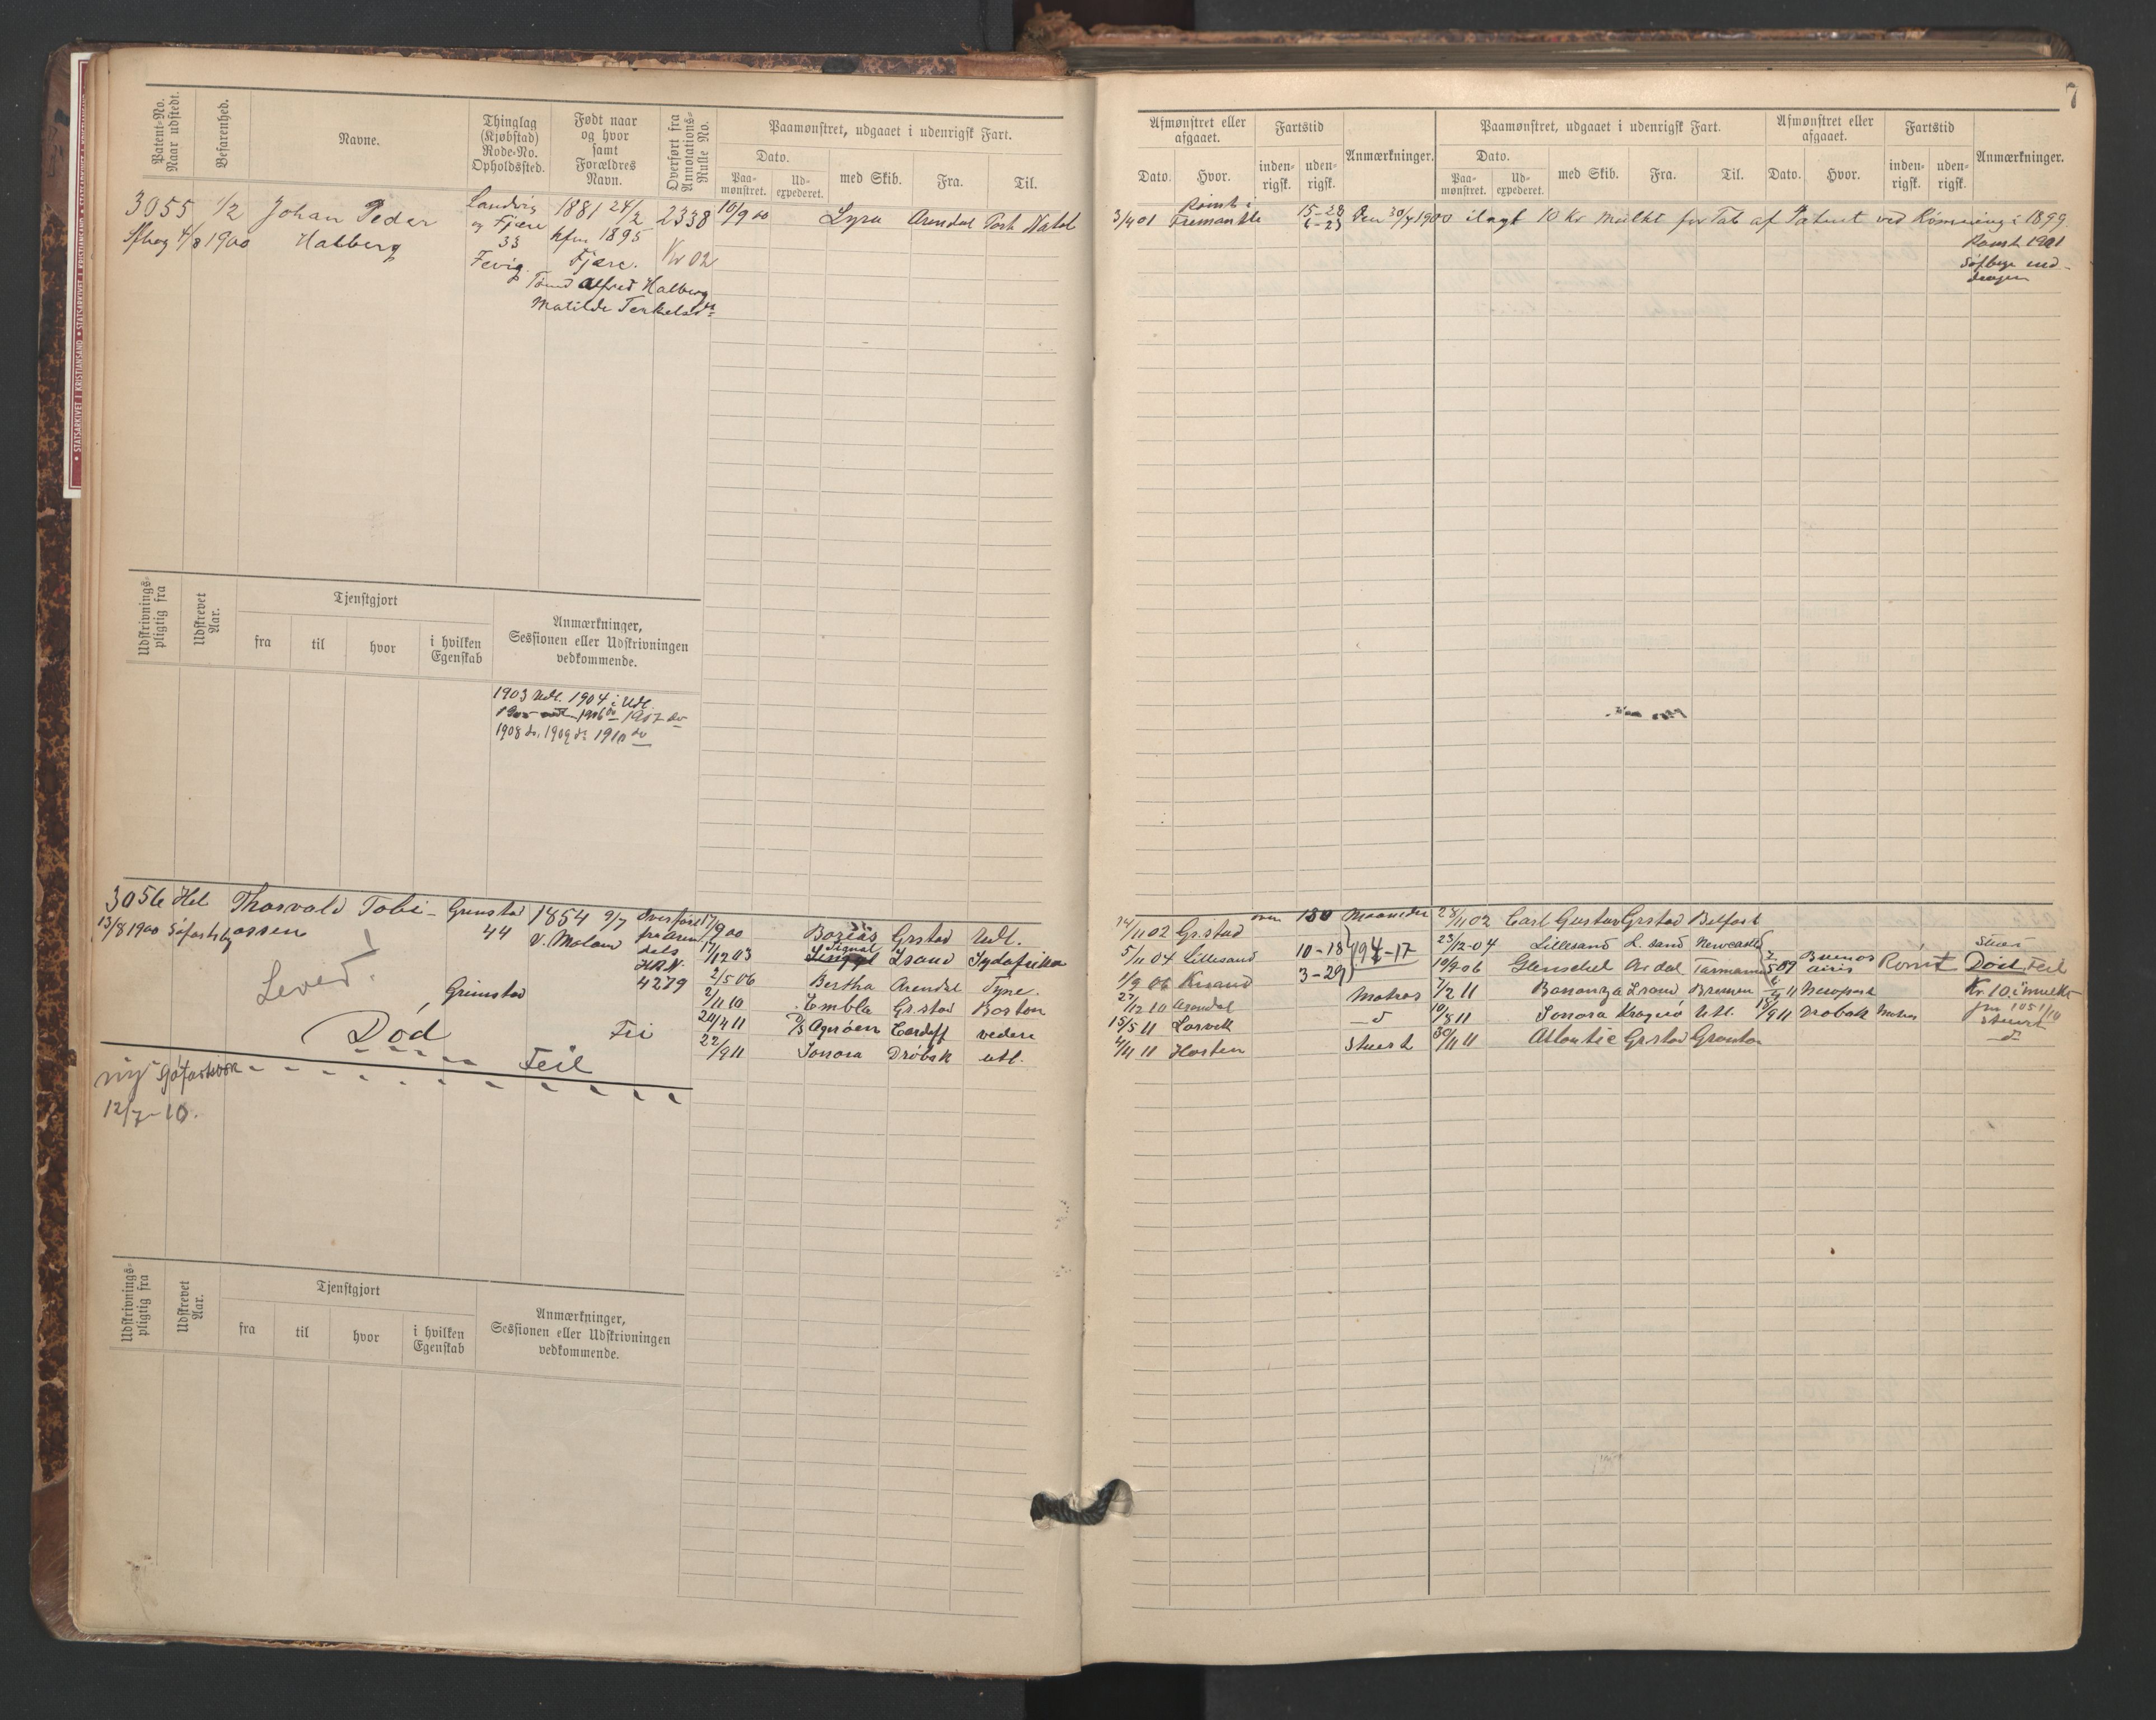 7
STATSARKIVET I KRISTIANSAND • STATSARKIVET I KRISTIANSAND
Patent-No. Naar udstedt.
Befarenhed.
Navne.
Thinglag (Kjøbstad) Rode-No. Opholdssted.
Født naar og hvor samt Forældres Navn.
Overført fra Annotations-Rulle No.
Paamønstret, udgaaet i udenrigsk Fart.
Dato.
Paa-mønstret.
Ud-expederet.
med Skib.
Fra.
Til.
Afmønstret eller afgaaet.
Dato.
Hvor.
Fartstid
inden-rigsk.
uden-rigsk.
Anmærkninger.
Paamønstret, udgaaet i udenrigsk Fart.
Dato.
Paa-mønstret.
Ud-expederet.
med Skib.
Fra.
Til.
Afmønstret eller afgaaet.
Dato.
Hvor.
Fartstid
inden-rigsk.
uden-rigsk.
Anmærkninger.
3055 1/2 Johan Peder
4/8 1900 Halberg
Landvig
og Fjære
33
Fevig.
1881 24/2
Kfm 1895
Fjære.
Alfred Halberg
Matilde Terkelsd
2338
Kv 02
10/9 00 Lyra Arendal Port Natal
3/4 01 Rømt i Fremantle 15-28
6-23
Den 30/7 1900 ilagt 10 Kr Mulkt for Tab af Patent ved Rømning i 1899
Rømt 1901
Udskrivnings-pligtig fra
Udskrevet Aar.
Tjenstgjort
fra
til
hvor
i hvilken Egenskab
Anmærkninger, Sessionen eller Udskrivningen vedkommende.
1903 Udl. 1904 i Udl.
1906 do 1907 do
1908 do. 1909 do 1910 do
3056 Hel Thorvald Tobi-
13/8 1900 assen
Grimstad
44
1854 9/7
V. Moland
Overført
fra Aren
dals
H.R.N.
4279
Levert
Grimstad
Død Fei
Feil
ny Søfartsbok
12/7-10.
17/9 00 Grstad Udl.
17/12 03 Signal Lsand Sydafrika
2/5 06 Bertha Arendal Tyne.
2/11 10 Embla Gr.stad Boston
20/4 11 D/S Agnøen Cardiff videre
22/9 11 Sonora Drøbak utl.
14/11 02 Gr.stad over 150 Maaneder
5/11 04 Lillesand 10-18
194-17
1/9 06 Krsand 3-29
27/12 10 Arendal Matros
15/5 11 Larvik d
4/11 11 Horten Stuert
28/11 02 Carl Gustav Grstad Belfast
23/12-04 Lillesand L.sand Newcastle
10/9-06 Glenschel Ardal Buenos Aires Rømt Død Feil
7/2 11 Bonanza Lsand Bremen Newport Kr 10 i mulkt
10/8 11 Sonora Kragerø Utl. 18/9 11 Drøbak Matros
Stuert
30/11 11 Atlantic Grstad Granton d
Udskrivnings-pligtig fra
Udskrevet Aar.
Tjenstgjort
fra
til
hvor
i hvilken Egenskab
Anmærkninger, Sessionen eller Udskrivningen vedkommende.